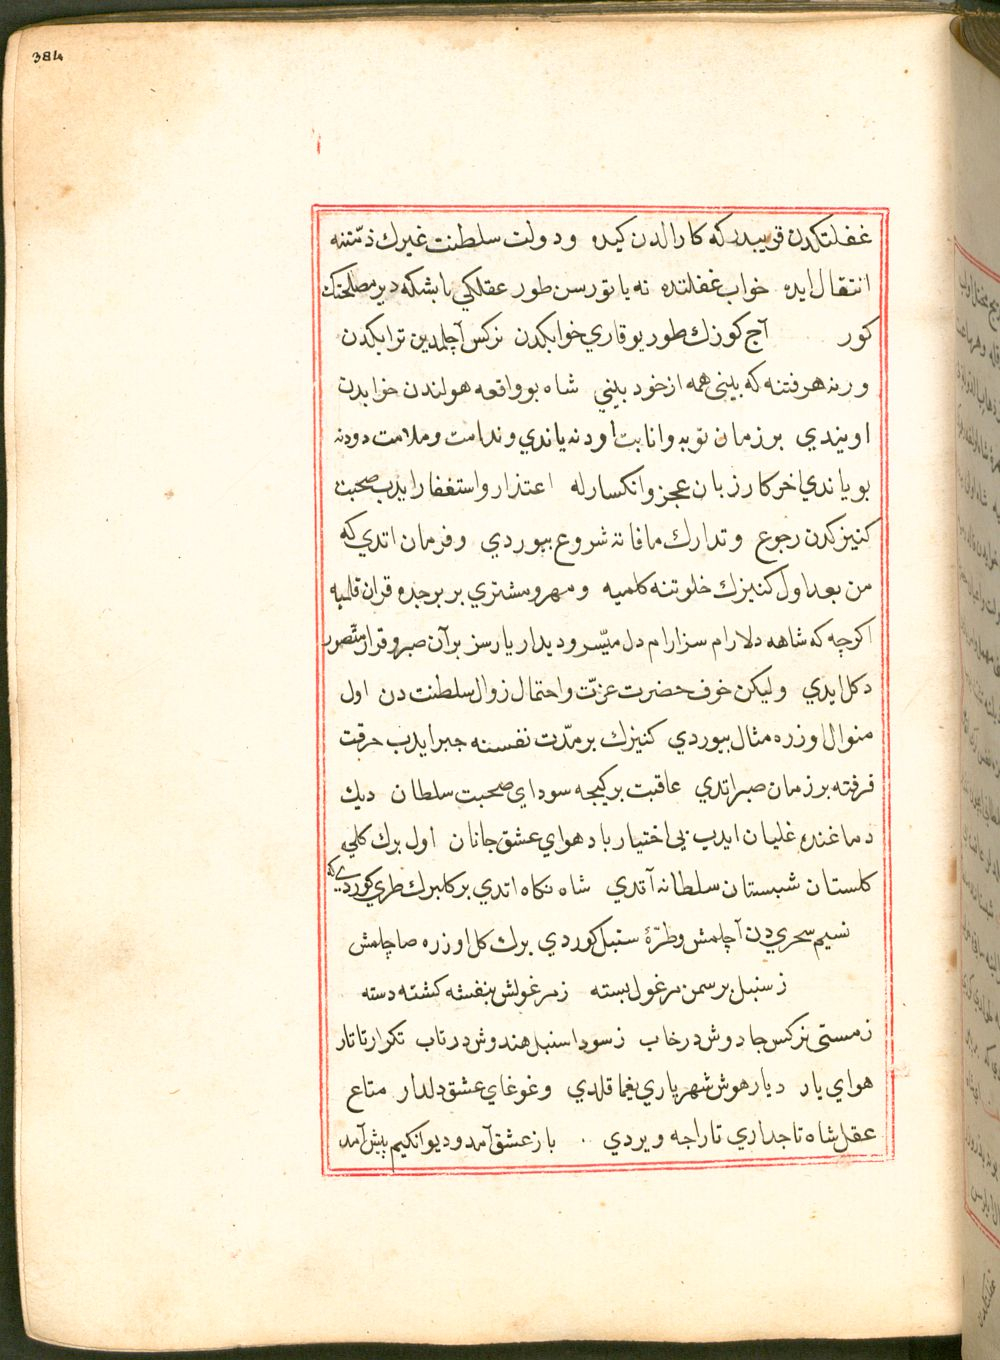 384
غفلتكدن قريبدر كه كار الدن كيده و دولت سلطنت غيرك ذمّتنه
انتقال ايده خواب غفلتده نه ياتورسن طور عقلكي باشكه دير مصلحتك
كور آج كوزك طور يوقاري خوابكدن نركس آچلمدين ترابكدن
ورنه هر فتنه كه بيني همه از خود بيني شاه بو واقعه هولندن خوابدن
اويندي بر زمان توبه وانابت اودنه ياندي وندامت وملامت دودنه
بوياندي اخر كار زبان عجز وانكسارله اعتذار واستغفار ايدب صحبت
كنيزكدن رجوع وتدارك مافاته شروع بيوردي وفرمان اتدي كه
من بعد اول كنيزك خلوتنه كلميه ومهر ومشتري بر برجده قران قلميه
اكرچه كه شاهه دلارام سز ارام دل ميّسر وديدار يارسز برآن صبر وقرار متّصور
دكل ايدي وليكن خوف حضرت عزّت واحتمال زوال سلطنت دن اول
منوال اوزره مثال بيوردي كنيزك بر مدّت نفسنه جبر ايدب حرقت
فرقته بر زمان صبر اتدي عاقبت بر كيجه سوداي صحبت سلطان ديك
دماغنده غليان ايدب بي اختيار باد هواي عشق جانان اول برك كلي
كلستان شبستان سلطانه آتدي شاه نكاه اتدي بر كلبرك طري كوردي كه
نسيم سحري دن آچلمش وطرّهٔ سنبل كوردي برك كل اوزره صاچلمش
ز سنبل بر سمن مرغول بسته ز مرغولش بنفشه كشته دسته
ز مستي نركس جادوش در خاب ز سودا سنبل هندوش در تاب تكرار تاتار
هواي يار ديار هوش شهرياري يغما قلدي وغوغاي عشق دلدار متاع
عقل شاه تاجداري تاراجه ويردي باز عشق آمد وديوانكيم پيش آمد